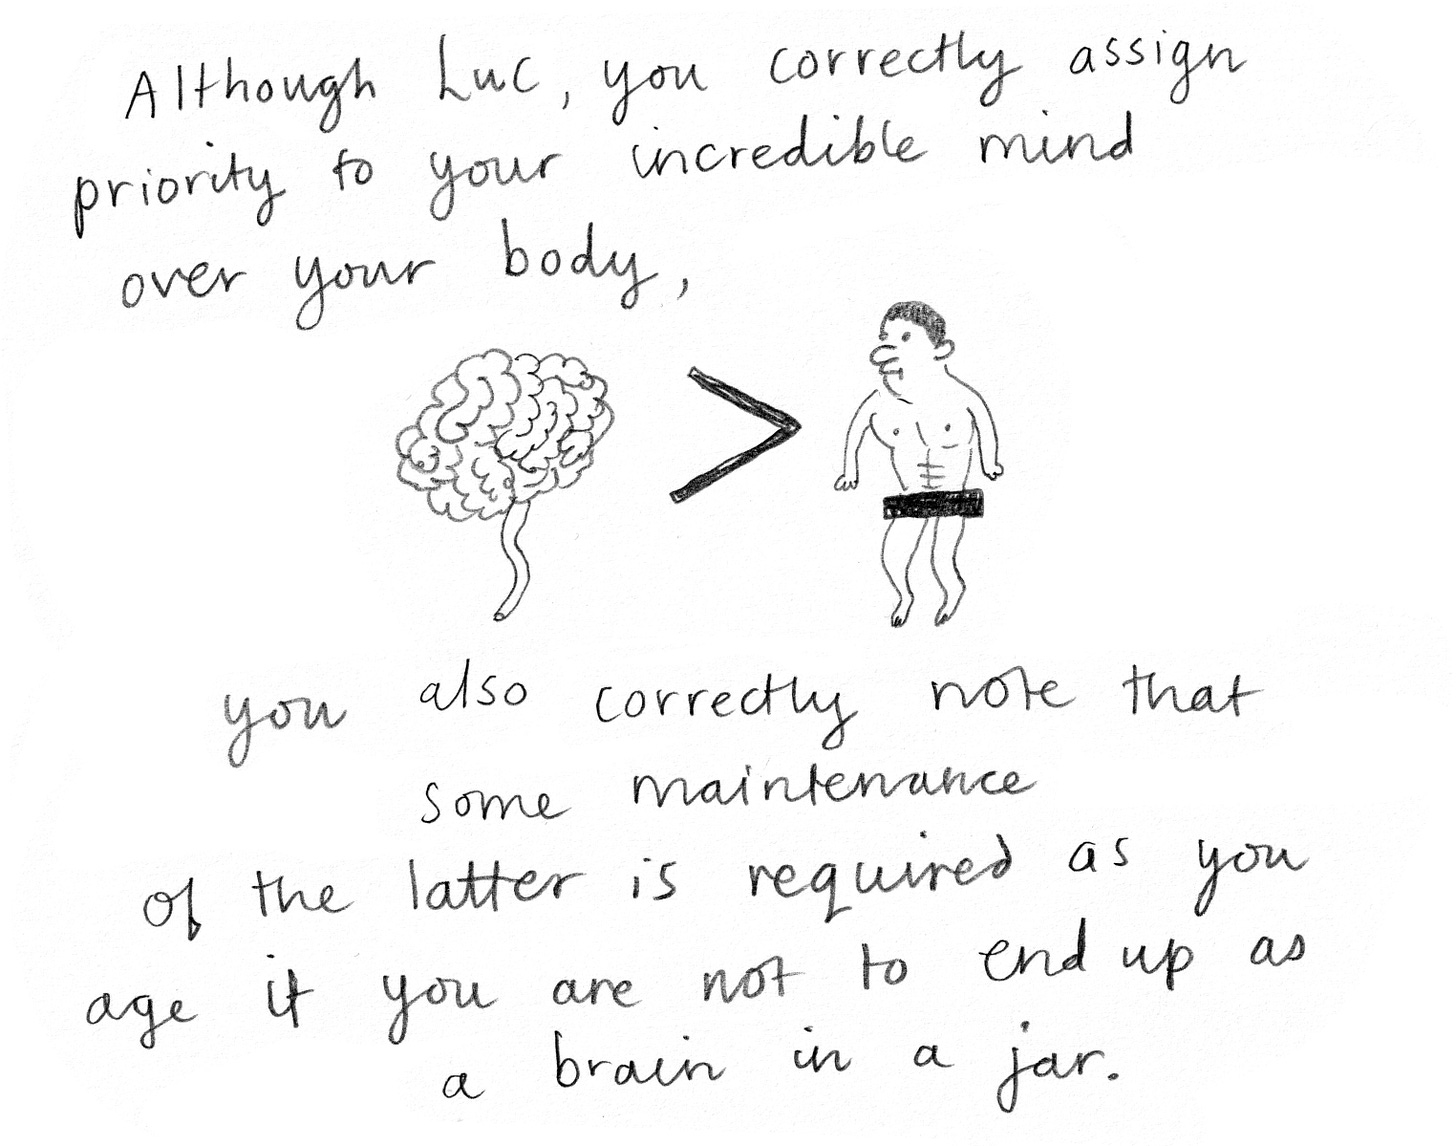 Although Luc, you correctly assign
priority to your incredible mind
over your body,
>
you also correctly note that
some maintenance
of the latter is required as you
age if you are not to end up as
a brain in a jar.